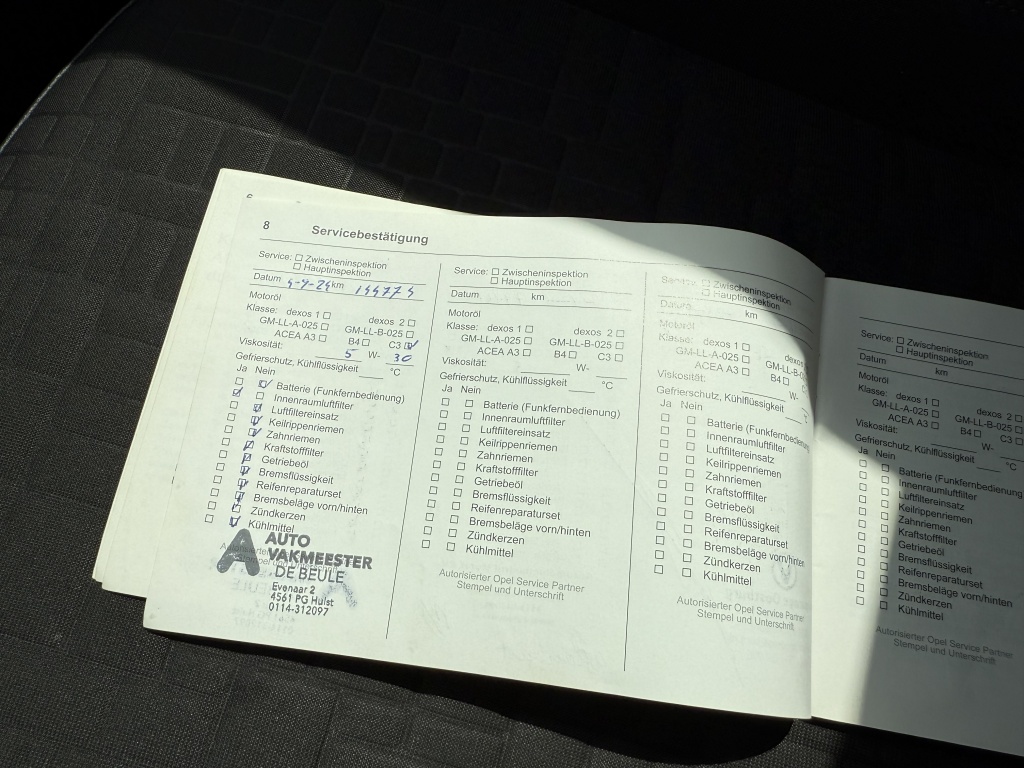 8 Servicebestätigung
Service: Zwischeninspektion
Hauptinspektion
Datum 4-9-24 km 144774
Motoröl
Klasse: dexos 1 dexos 2
GM-LL-A-025 GM-LL-B-025
ACEA A3 B4 C3
Viskosität: 5 W- 30
Gefrierschutz, Kühlflüssigkeit °C
Ja Nein
Batterie (Funkfernbedienung)
Innenraumluftfilter
Luftfiltereinsatz
Keilrippenriemen
Zahnriemen
Kraftstofffilter
Getriebeöl
Bremsflüssigkeit
Reifenreparaturset
Bremsbeläge vorn/hinten
Zündkerzen
Kühlmittel
AUTO
VAKMEESTER
DE BEULE
Evenaar 2
4561 PG Hulst
0114-312097
Service: Zwischeninspektion
Hauptinspektion
Datum km
Motoröl
Klasse: dexos 1 dexos 2
GM-LL-A-025 GM-LL-B-025
ACEA A3 B4 C3
Viskosität: W-
Gefrierschutz, Kühlflüssigkeit °C
Ja Nein
Batterie (Funkfernbedienung)
Innenraumluftfilter
Luftfiltereinsatz
Keilrippenriemen
Zahnriemen
Kraftstofffilter
Getriebeöl
Bremsflüssigkeit
Reifenreparaturset
Bremsbeläge vorn/hinten
Zündkerzen
Kühlmittel
Autorisierter Opel Service Partner
Stempel und Unterschrift
Service: Zwischeninspektion
Hauptinspektion
Datum km
Motoröl
Klasse: dexos 1 dexos
GM-LL-A-025 GM-LL-B-0
ACEA A3 B4 C
Viskosität: W-
Gefrierschutz, Kühlflüssigkeit
Ja Nein
Batterie (Funkfernbedienung
Innenraumluftfilter
Luftfiltereinsatz
Keilrippenriemen
Zahnriemen
Kraftstofffilter
Getriebeöl
Bremsflüssigkeit
Reifenreparaturset
Bremsbeläge vorn/hinten
Zündkerzen
Kühlmittel
Autorisierter Opel Service Partner
Stempel und Unterschrift
Service: Zwischeninspektion
Hauptinspektion
Datum km
Motoröl
Klasse: dexos 1 dexos 2
GM-LL-A-025 GM-LL-B-025
ACEA A3 B4 C3
Viskosität: W-
Gefrierschutz, Kühlflüssigkeit °C
Ja Nein
Batterie (Funkfernbedienung
Innenraumluftfilter
Luftfiltereinsatz
Keilrippenriemen
Zahnriemen
Kraftstofffilter
Getriebeöl
Bremsflüssigkeit
Reifenreparaturset
Bremsbeläge vorn/hinten
Zündkerzen
Kühlmittel
Autorisierter Opel Service Partner
Stempel und Unterschrift